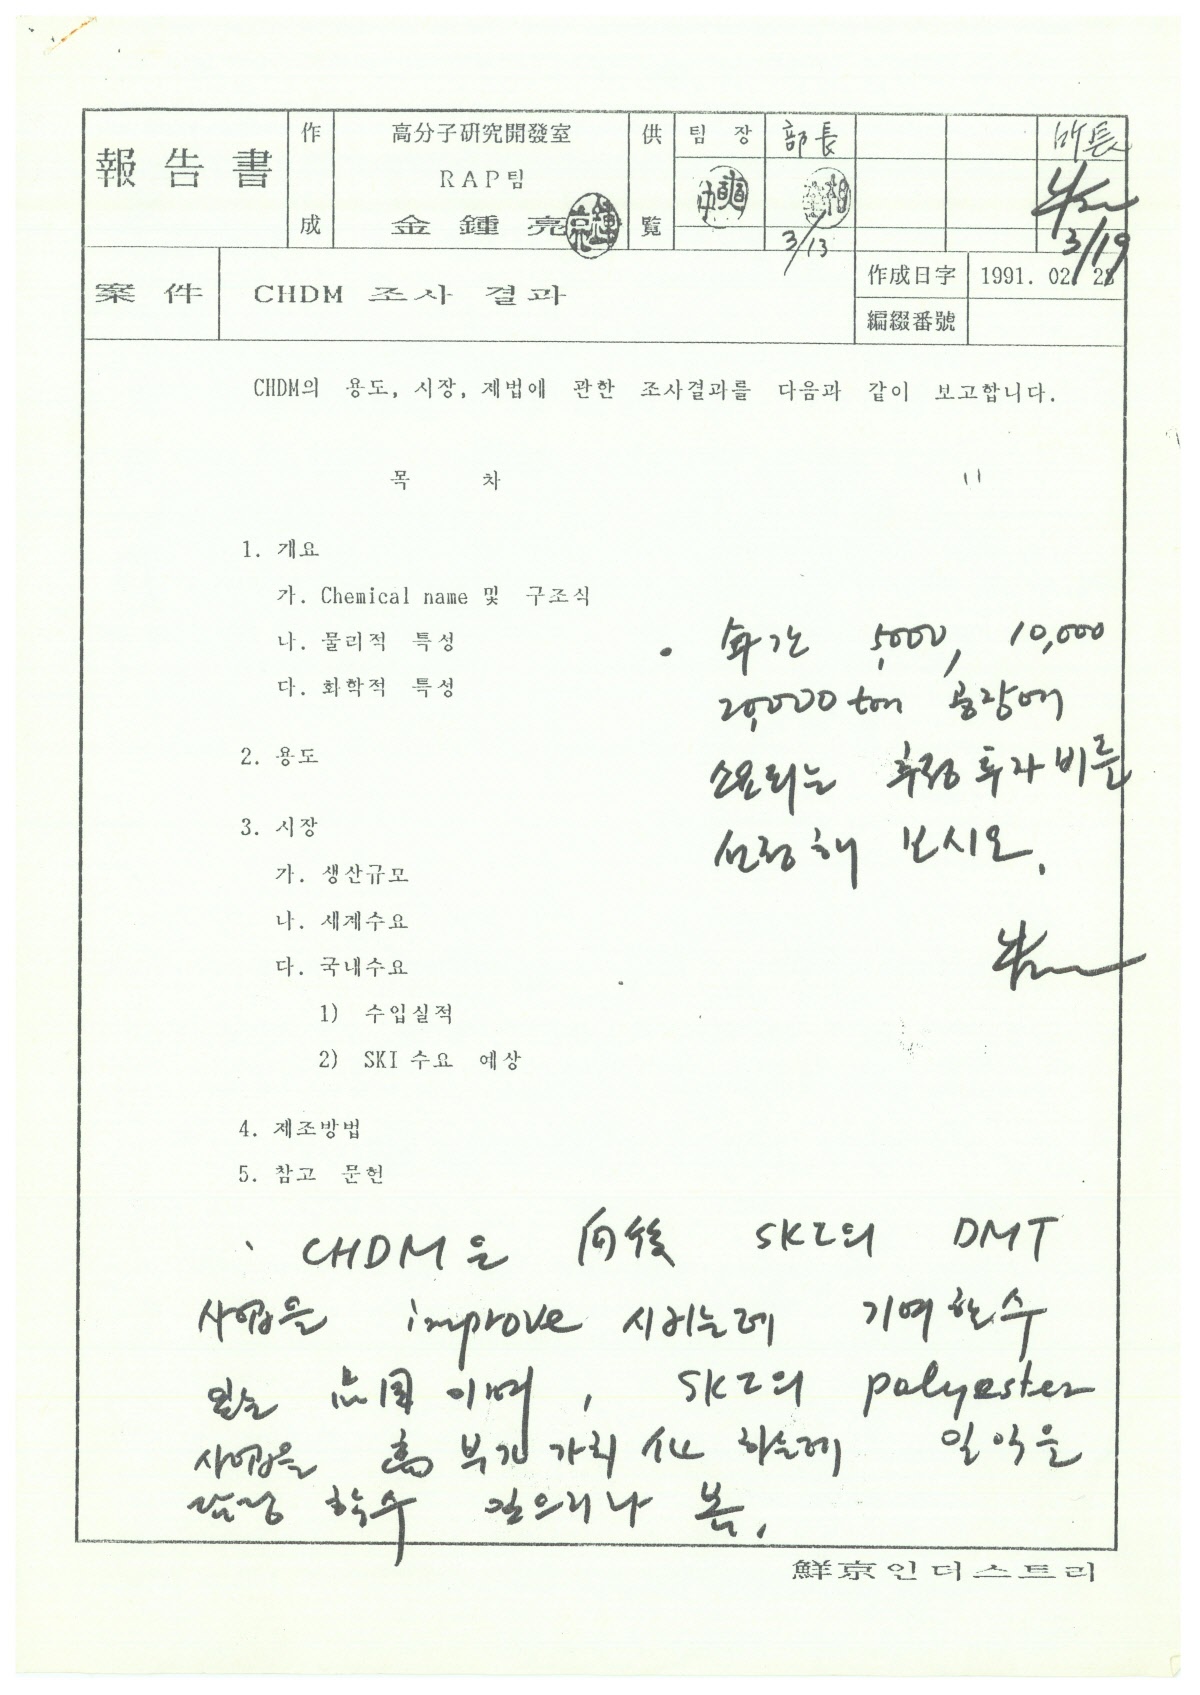 報告書
作成
高分子研究開發室
RAP팀
金鍾亮
供覧
팀 장
部長
所長
3/13
3/19
案件
CHDM 조사 결과
作成日字
1991. 02. 28
編綴番號
CHDM의 용도, 시장, 제법에 관한 조사결과를 다음과 같이 보고합니다.
목 차
1. 개요
가. Chemical name 및 구조식
나. 물리적 특성
다. 화학적 특성
2. 용도
3. 시장
가. 생산규모
나. 세계수요
다. 국내수요
1) 수입실적
2) SKI 수요 예상
4. 제조방법
5. 참고 문헌
. 年간 5,000, 10,000
20,000 ton 공장에
소요되는 추정 투자비를
선정해 보시오.
CHDM은 向後 SKI의 DMT
사업을 improve 시키는데 기여할 수
있는 品目이며, SKI의 polyester
사업을 高부가가치化 하는데 일익을
담당할 수 있으리라 봄.
鮮京인더스트리